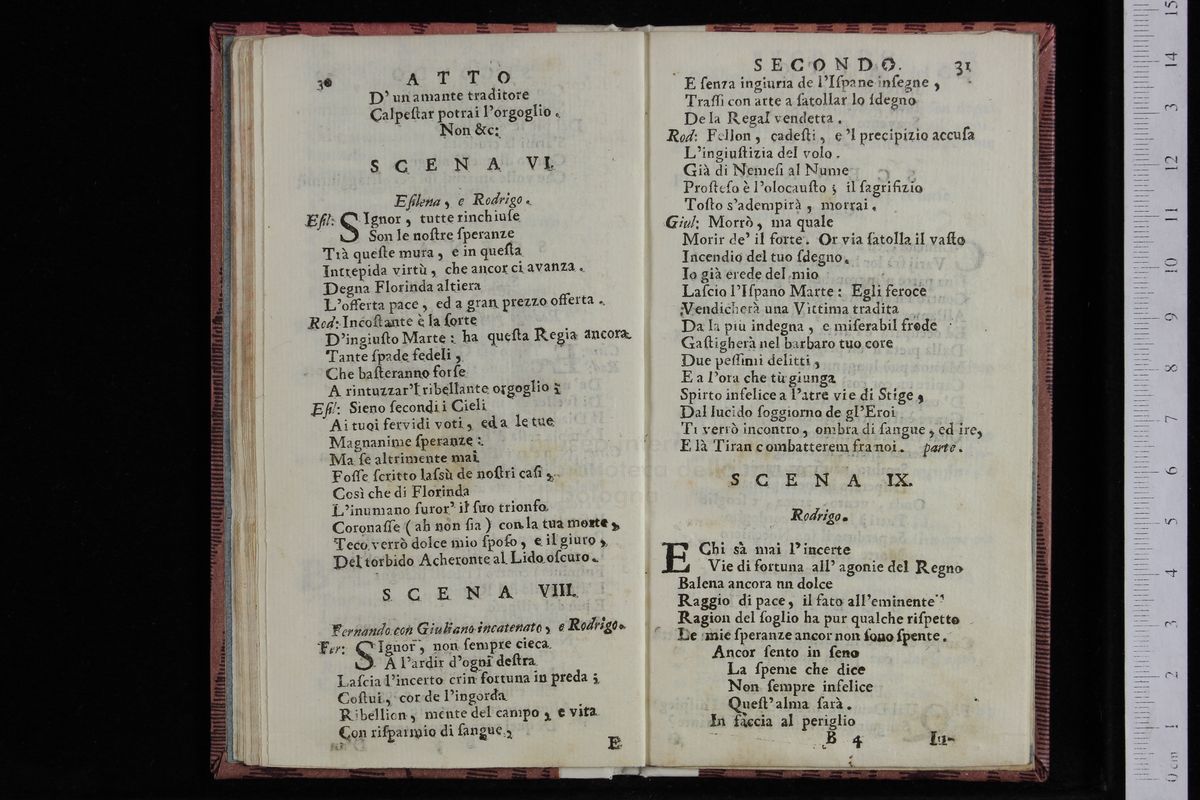 30 ATTO
D' un amante traditore
Calpeſtar potrai l'orgoglio.
Non &c:
SCENA VI.
Efilena, e Rodrigo.
Efil: SIgnor, tutte rinchiuſe
Son le noſtre ſperanze
Trà queſte mura, e in queſta
Intrepida virtù, che ancor ci avanza.
Degna Florinda altiera
L'offerta pace, ed a gran prezzo offerta.
Rod: Incoſtante è la ſorte
D'ingiuſto Marte: ha queſta Regia ancora
Tante ſpade fedeli,
Che baſteranno forſe
A rintuzzar'l ribellante orgoglio;
Efil: Sieno ſecondi i Cieli
Ai tuoi fervidi voti, ed a le tue
Magnanime ſperanze:
Ma ſe altrimente mai
Foſſe ſcritto laſsù de noſtri caſi,
Così che di Florinda
L'inumano furor' il ſuo trionfo
Coronaſſe (ah non ſia) con la tua morte,
Teco verrò dolce mio ſpoſo, e il giuro,
Del torbido Acheronte al Lido oſcuro.
SCENA VIII.
Fernando con Giuliano incatenato, e Rodrigo.
Fer: SIgnor, non ſempre cieca
A l'ardir d'ogni deſtra
Laſcia l'incerto crin fortuna in preda;
Coſtui, cor de l'ingorda
Ribellion, mente del campo, e vita
Con riſparmio di ſangue,
E
SECONDO. 31
E ſenza ingiuria de l'Iſpane inſegne,
Traſſi con arte a ſatollar lo ſdegno
De la Regal vendetta.
Rod: Fellon, cadeſti, e 'l precipizio accuſa
L'ingiuſtizia del volo.
Già di Nemeſi al Nume
Proſteſo è l'olocauſto; il ſagrifizio
Toſto s'adempirà, morrai.
Giul: Morrò, ma quale
Morir de' il forte. Or via ſatolla il vaſto
Incendio del tuo ſdegno.
Io già erede del mio
Laſcio l'Iſpano Marte: Egli feroce
Vendicherà una Vittima tradita
Da la più indegna, e miſerabil frode
Gaſtigherà nel barbaro tuo core
Due peſſimi delitti,
E a l'ora che tù giunga
Spirto infelice a l'atre vie di Stige,
Dal lucido ſoggiorno de gl'Eroi
Ti verrò incontro, ombra di ſangue, ed ire,
E là Tiran combatterem fra noi. parte.
SCENA IX.
Rodrigo.
E Chi sà mai l'incerte
Vie di fortuna all' agonie del Regno
Balena ancora nn dolce
Raggio di pace, il fato all'eminente
Ragion del ſoglio ha pur qualche riſpetto
Le mie ſperanze ancor non ſono ſpente.
Ancor ſento in ſeno
La ſpeme che dice
Non ſempre infelice
Queſt'alma ſarà.
In faccia al periglio
B 4 In-